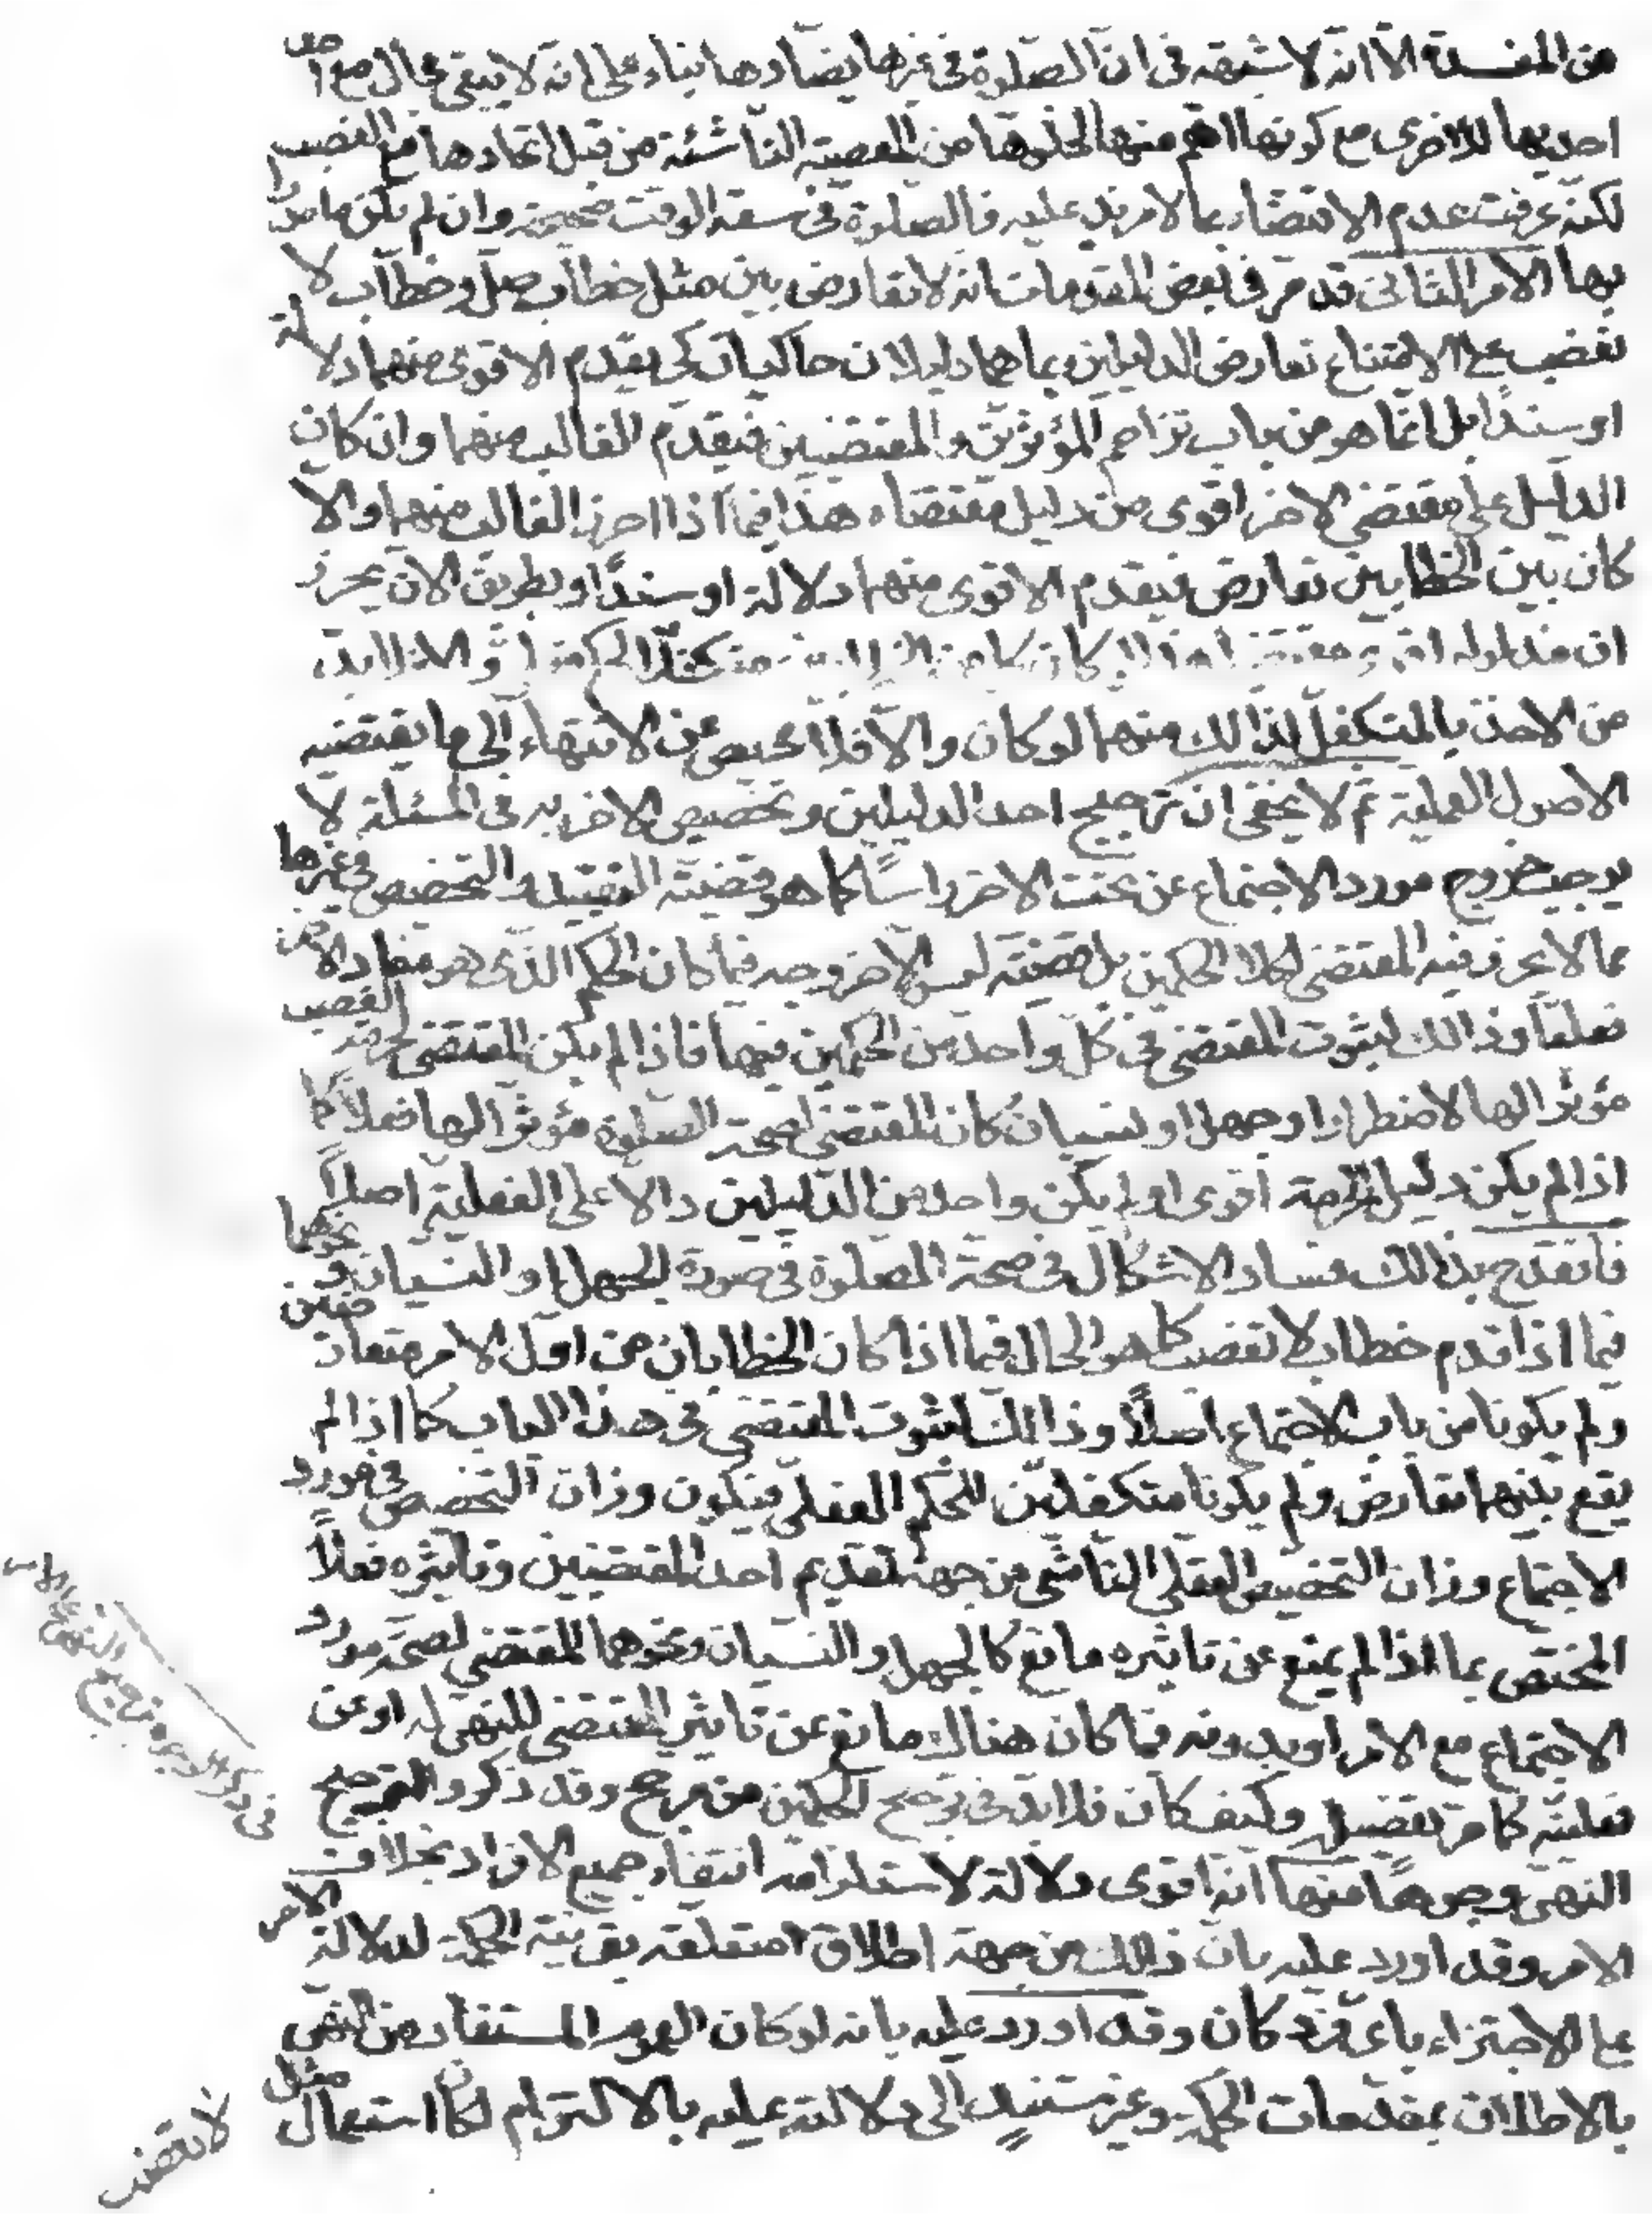 من المفسدة الا انه لا شبهة فى ان الصلوة فى غيرها يضادها بناء على انه لا يبقى مجال مع
احديهما للاخرى مع كونها اهم منها لخلوها من المعصية الناشئة من قبل اتحادها مع الغصب
لكنه عرفت عدم الاقتضاء بما لا مزيد عليه فالصلوة فى سعة الوقت صحيحة وان لم تكن مامورا
بها الامر الثانى قد مر فى بعض المقدمات انه لا تعارض بين مثل خطاب صل وخطاب لا
تغصب على الامتناع تعارض الدليلين بما هما دليلان حاكيان كى يقدم الاقوى منهما دلالة
او سندا بل انما هو من باب تزاحم المؤثرين والمقتضيين فيقدم الغالب منهما وان كان
الدليل على مقتضى الاخر اقوى من دليل مقتضاه هذا فيما اذا احرز الغالب منهما والا
كان بين الخطابين تعارض فيقدم الاقوى منهما دلالة او سندا وبطريق الان يحرز
ان مدلوله اقوى مقتضيا هذا لو كان كل من الخطابين متكفلا لحكم فعلى والا فلابد
من الاخذ بالمتكفل لذالك منهما لو كان والا فلا محيص عن الانتهاء الى ما يقتضيه
الاصول العملية ثم لا يخفى ان ترجيح احد الدليلين وتخصيص الاخر به فى المسئلة لا
يوجب خروج مورد الاجتماع عن تحت الاخر راسا كما هو قضية التقييد والتخصيص فى غيرها
مما لا يحرز فيه المقتضى لكلا الحكمين بل قضيته ليس الا خروجه فيما كان الحكم الذى هو مفاد الاخر
فعليا وذالك لثبوت المقتضى فى كل واحد من الحكمين فيها فاذا لم يكن المقتضى لحرمة الغصب
مؤثرا لها لاضطرار او جهل او نسيان كان المقتضى لصحة الصلوة مؤثرا لها فعلا كما
اذا لم يكن دليل الحرمة اقوى او لم يكن واحد من الدليلين دالا على الفعلية اصلا
فانقدح بذالك فساد الاشكال فى صحة الصلوة فى صورة الجهل او النسيان ونحوهما
فيما اذا قدم خطاب لا تغصب كما هو الحال فيما اذا كان الخطابان من اول الامر متعارضين
ولم يكونا من باب الاجتماع اصلا وذالك لثبوت المقتضى فى هذا الباب كما اذا لم
يقع بينهما تعارض ولم يكونا متكفلين للحكم الفعلى فيكون وزان التخصيص فى مورد
الاجتماع وزان التخصيص العقلى الناشى من جهة تقديم احد المقتضيين وتاثيره فعلا
المختص بما اذا لم يمنع عن تاثيره مانع كالجهل والنسيان ونحوهما المقتضى لصحة مورد
الاجتماع مع الامر او بدونه فيما كان هناك مانع عن تاثير المقتضى للنهى له او عن
فعليته كما مر تفصيله وكيف كان فلابد فى ترجيح الحكمين من مرجح وقد ذكروا لترجيح
النهى وجوها منها انه اقوى دلالة لاستلزامه انتفاء جميع الافراد بخلاف
الامر وقد اورد عليه بان ذالك من جهة اطلاق متعلقه بقرينة الحكمة لدلالة الامر
على الاجتزاء باى فرد كان وقد اورد عليه بانه لو كان العموم المستفاد من النهى
بالاطلاق بمقدمات الحكمة وغير مستند الى دلالته عليه بالالتزام لكان استعمال مثل
فى ذكر الوجوه ترجيح النهى على الامر
لا تغصب